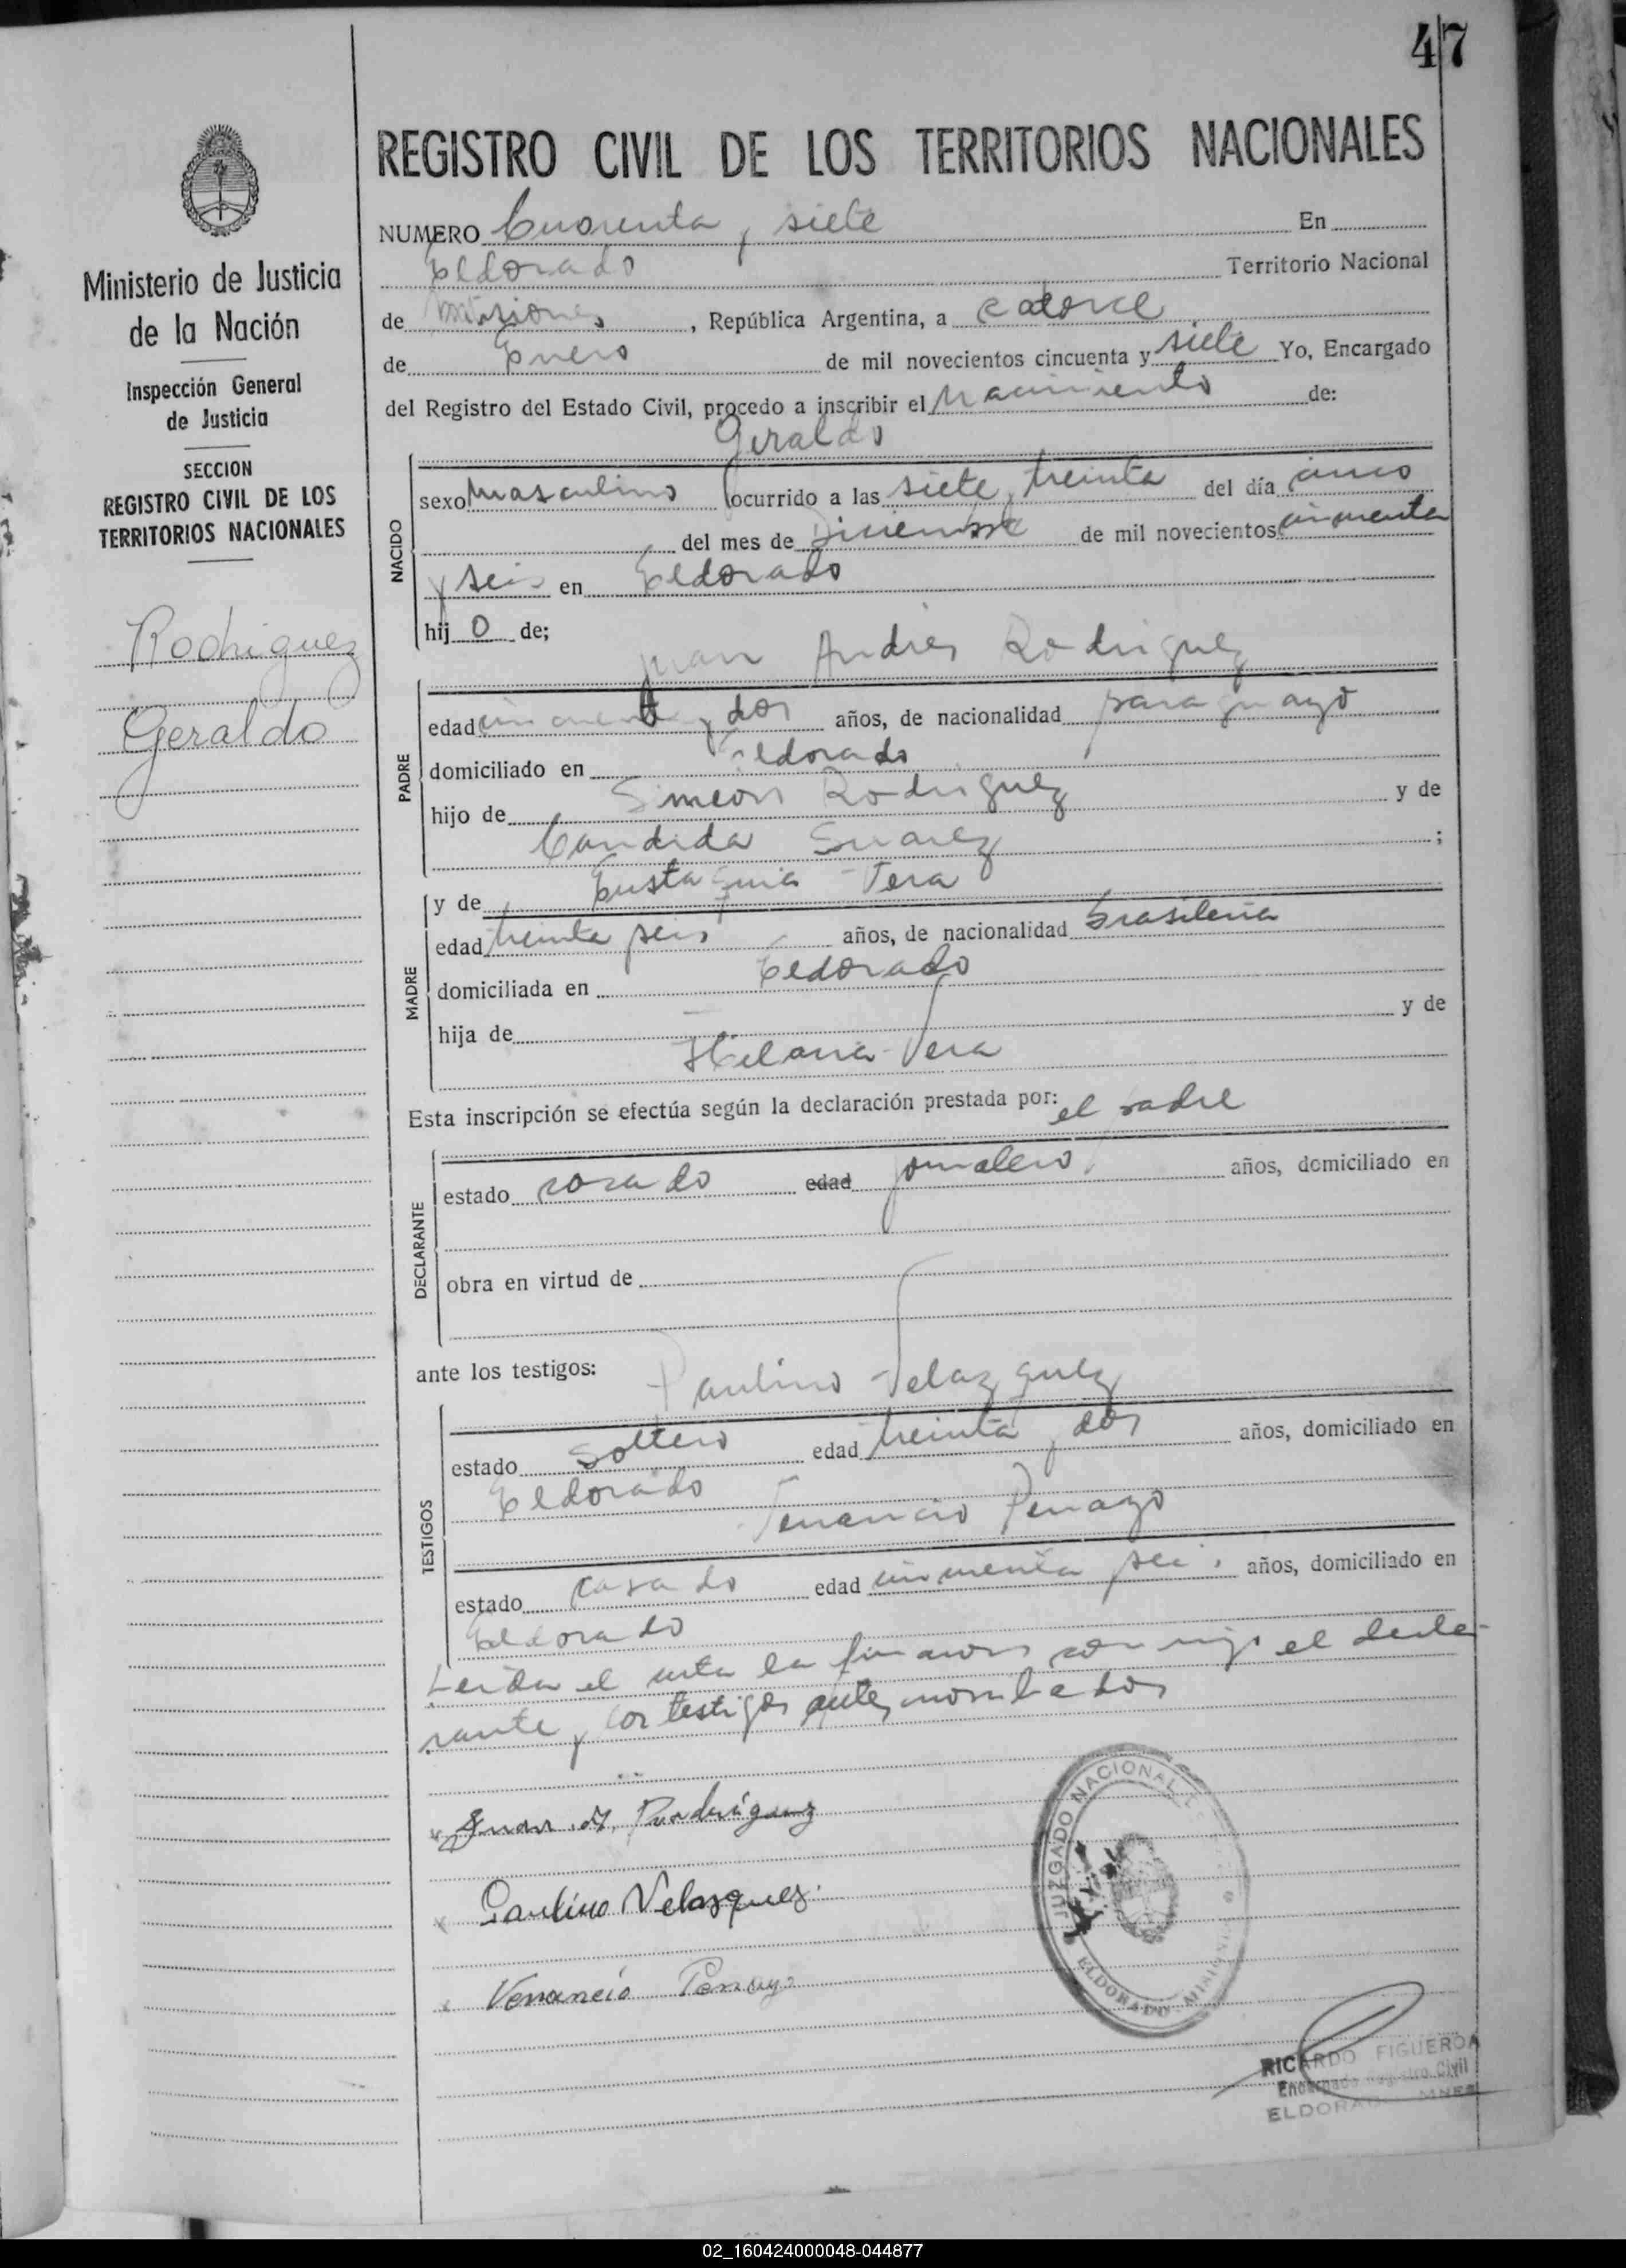 47
REGISTRO CIVIL DE LOS TERRITORIOS NACIONALES
Ministerio de Justicia
de la Nación
Inspección General
de Justicia
SECCION
REGISTRO CIVIL DE LOS
TERRITORIOS NACIONALES
Rodriguez
Geraldo
NUMERO Cuarenta y siete En
Eldorado Territorio Nacional
de Misiones, República Argentina, a catorce
de Enero de mil novecientos cincuenta y siete Yo, Encargado
del Registro del Estado Civil, procedo a inscribir el Nacimiento de:
Geraldo
NACIDO
sexo masculino ocurrido a las siete y treinta del día cinco
del mes de Diciembre de mil novecientos cincuenta
y seis en Eldorado
hij o de;
Juan Andres Rodriguez
PADRE
edad cincuenta y dos años, de nacionalidad paraguayo
domiciliado en Eldorado
hijo de Simeon Rodriguez y de
Candida Suarez ;
y de Eustaquia Vera
MADRE
edad treinta y seis años, de nacionalidad brasileria
domiciliada en Eldorado
hija de — y de
Hilaria Vera
Esta inscripción se efectúa según la declaración prestada por: el padre
DECLARANTE
estado casado edad jornalero años, domiciliado en
obra en virtud de
ante los testigos: Paulino Velazquez
TESTIGOS
estado soltero edad treinta y dos años, domiciliado en
Eldorado
Venancio Penayo
estado casado edad cincuenta y seis años, domiciliado en
Eldorado
Leida el acta la firmaron conmigo el decla-
rante y los testigos antes nombrados
Juan A. Rodriguez
Paulino Velasquez
Venancio Penayo
JUZGADO NACIONAL
ELDORADO - MISIONES
RICARDO FIGUEROA
Encargado Registro Civil
ELDORADO MNES
02_160424000048-044877